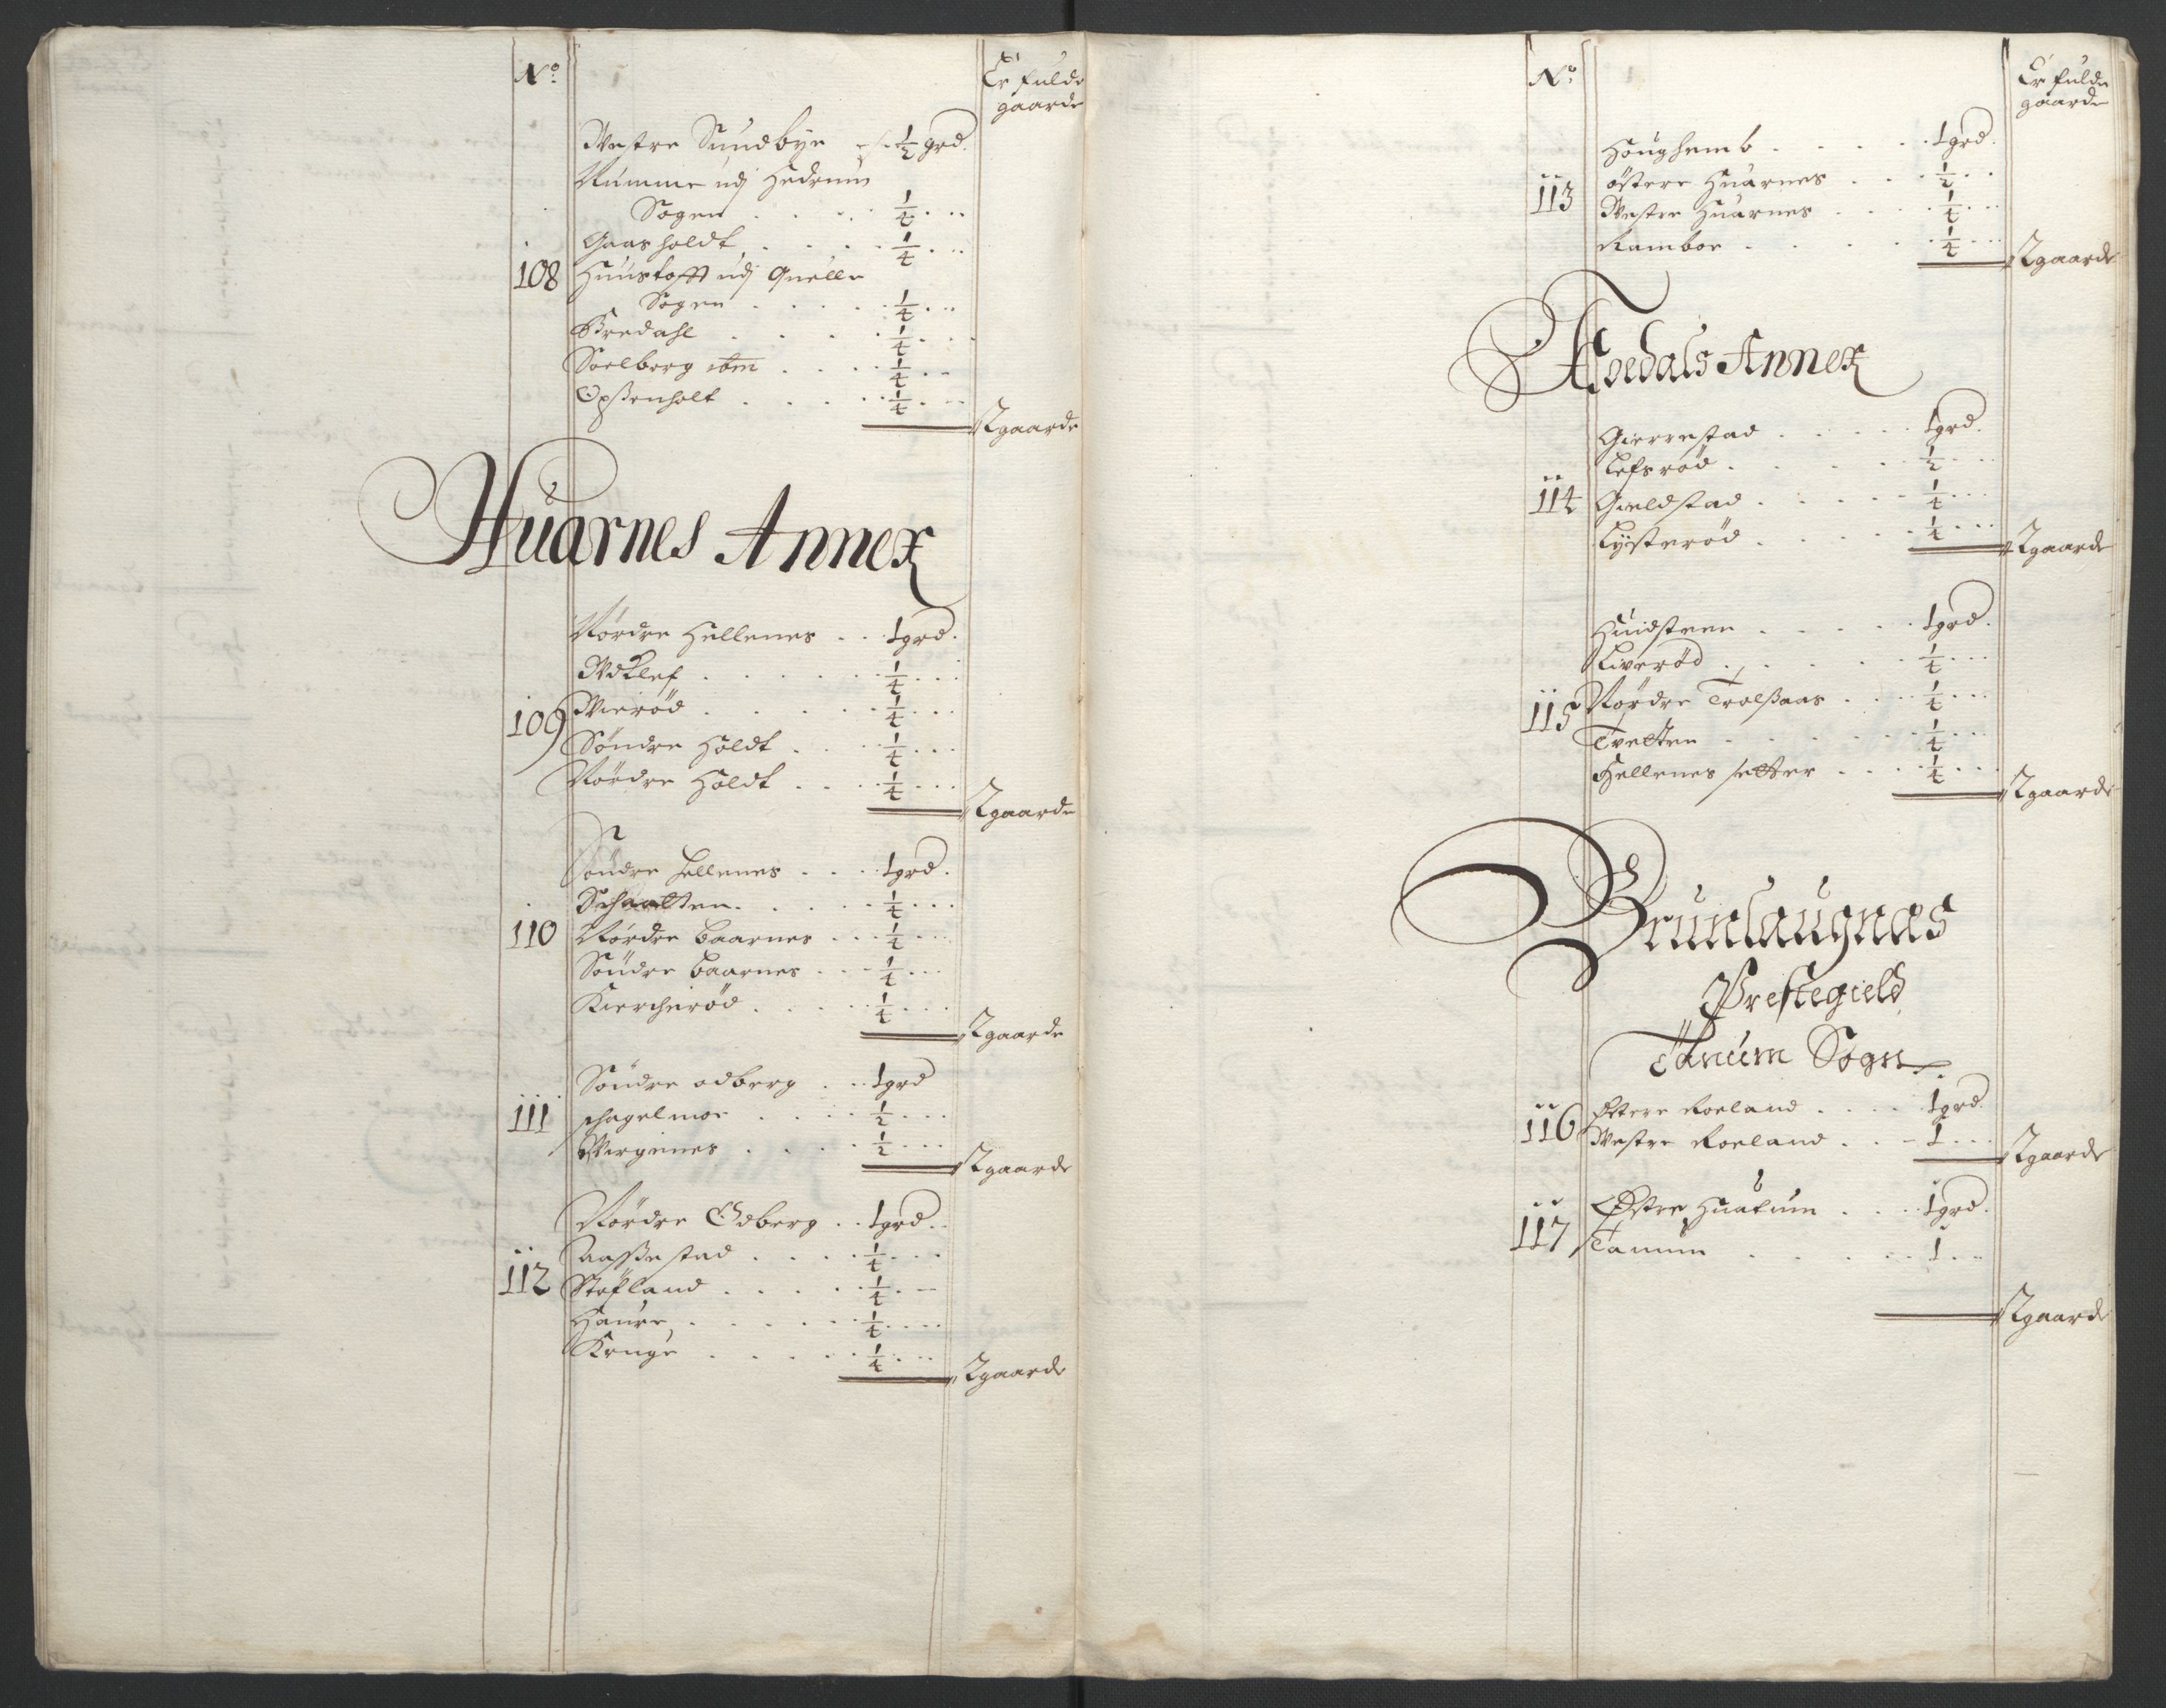 No
Er fulde
gaarde
Westre Sundbye 1/2 grd.
Numme udj Hedrum
Sogen 1/4
Gaasholdt 1/4
108 Huustofft udj Quelle
Sogen 1/4
Bredahl 1/4
Soelberg ibm 1/4
Opßenholt 1/4
2gaarde
Huarnes Annex
Nordre Hellenes 1grd.
Wdklef 1/4
109 Wierød 1/4
Søndre Holdt 1/4
Nordre Holdt 1/4
2gaarde
Søndre Hellenes 1grd.
Schaatten 1/4
110 Nordre Baarnes 1/4
Søndre Baarnes 1/4
Kiercherød 1/4
2gaarde
Søndre odberg 1grd
111 schagelmoe 1/2
Wirgenes 1/2
2gaarde
Nordre Odberg 1grd.
Aaßestad 1/4
112 Stofland 1/4
Hauen 1/4
Kruge 1/4
2gaarde
No
Er fulde
gaarde
Houghemb 1grd.
113 östere Huarnes 1/2
Westre Huarnes 1/4
Ramboe 1/4
2gaarde
Qvedals Annex
Gierrestad 1grd.
Lefsrød 1/2
114 Gieldstad 1/4
Lysterød 1/4
2gaarde
Huidsteen 1grd.
Liverød 1/4
115 Nordre Trolßaas 1/4
Tvetten 1/4
Hellenes setter 1/4
2gaarde
Brunlaugnæs
Prestegield
Tanum Sogn
116 Østere Roeland 1grd.
Westre Roeland 1
2gaarde
Østre Huatum 1grd.
117 Tanum 1
2gaarde